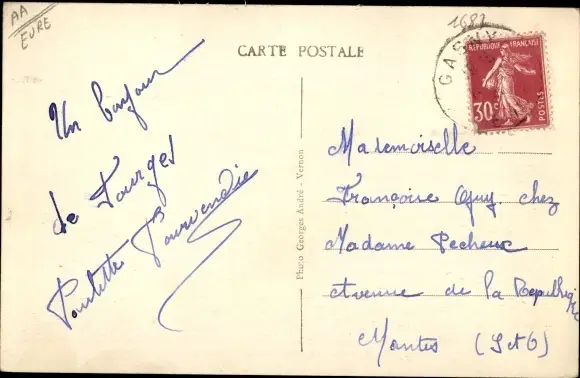 AA
EURE
1682
CARTE POSTALE
GASNY
RÉPUBLIQUE FRANÇAISE
30c
POSTES
Un bonjour
de Fourges
Paulette
Photo Georges André - Vernon
Mademoiselle
Françoise chez
Madame Pecheux
Avenue de la République
Mantes (S et O)